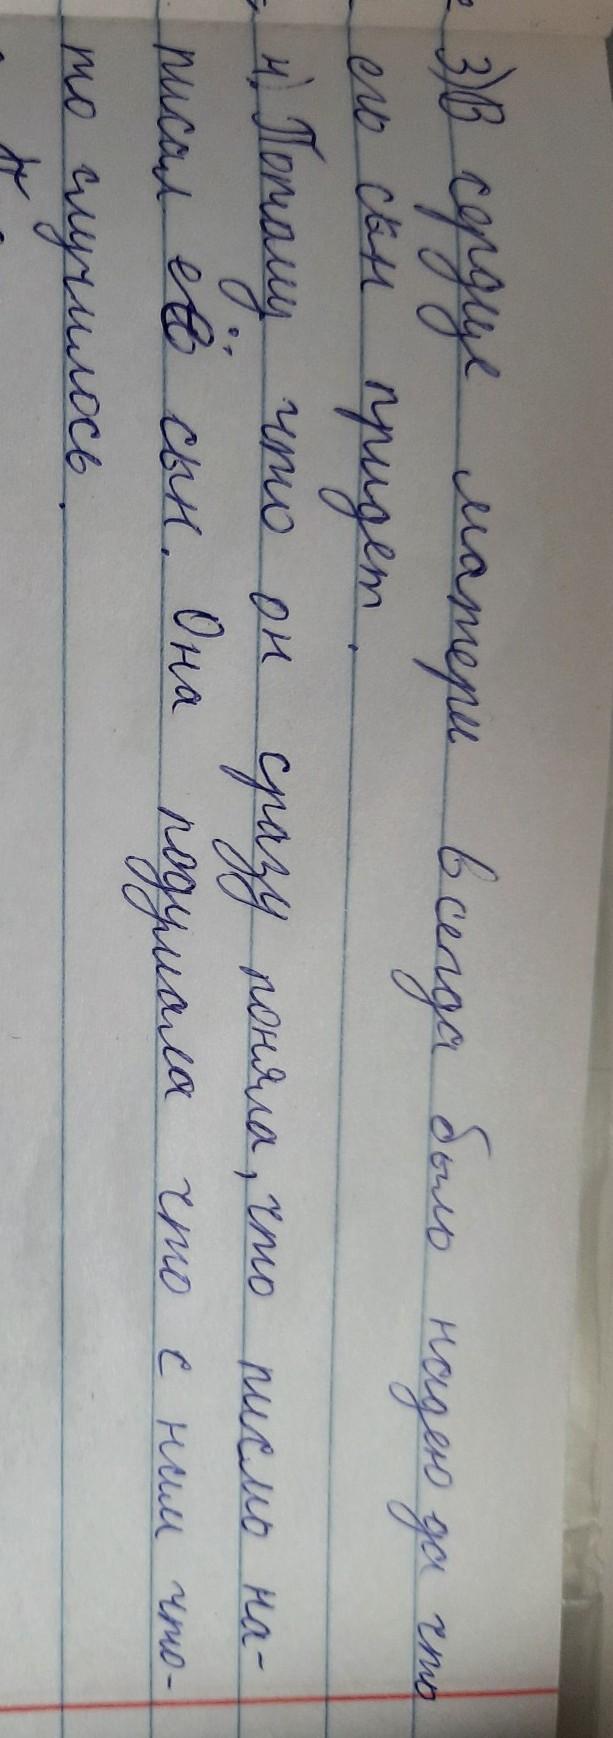 3) В сердце матери всегда было надею да что
его сын придет.
4). Потому что он сразу поняла, что писмо на-
писал её сын. Она подумала что с ним что-
то случилось.